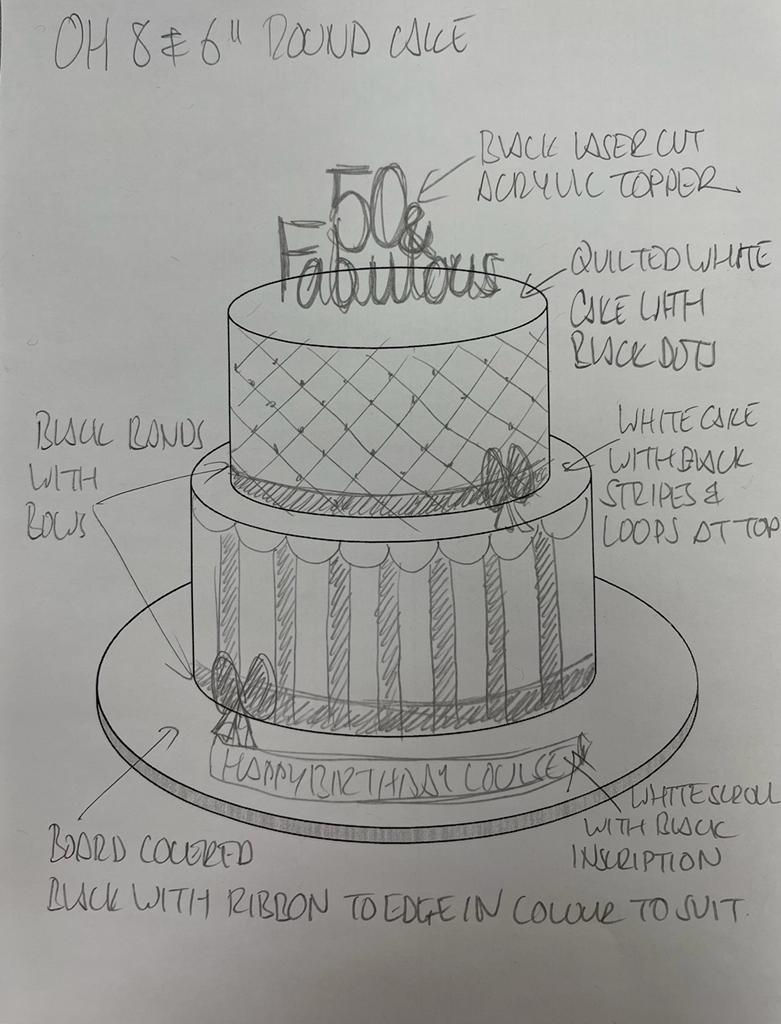 OH 8 & 6" ROUND CAKE
BLACK LASER CUT
ACRYLIC TOPPER
50 &
Fabulous
QUILTED WHITE
CAKE WITH
BLACK DOTS
BLACK BANDS
WITH
BOWS
WHITE CAKE
WITH BLACK
STRIPES &
LOOPS AT TOP
HAPPY BIRTHDAY LOUISE
WHITE SCROLL
WITH BLACK
INSCRIPTION
BOARD COVERED
BLACK WITH RIBBON TO EDGE IN COLOUR TO SUIT.